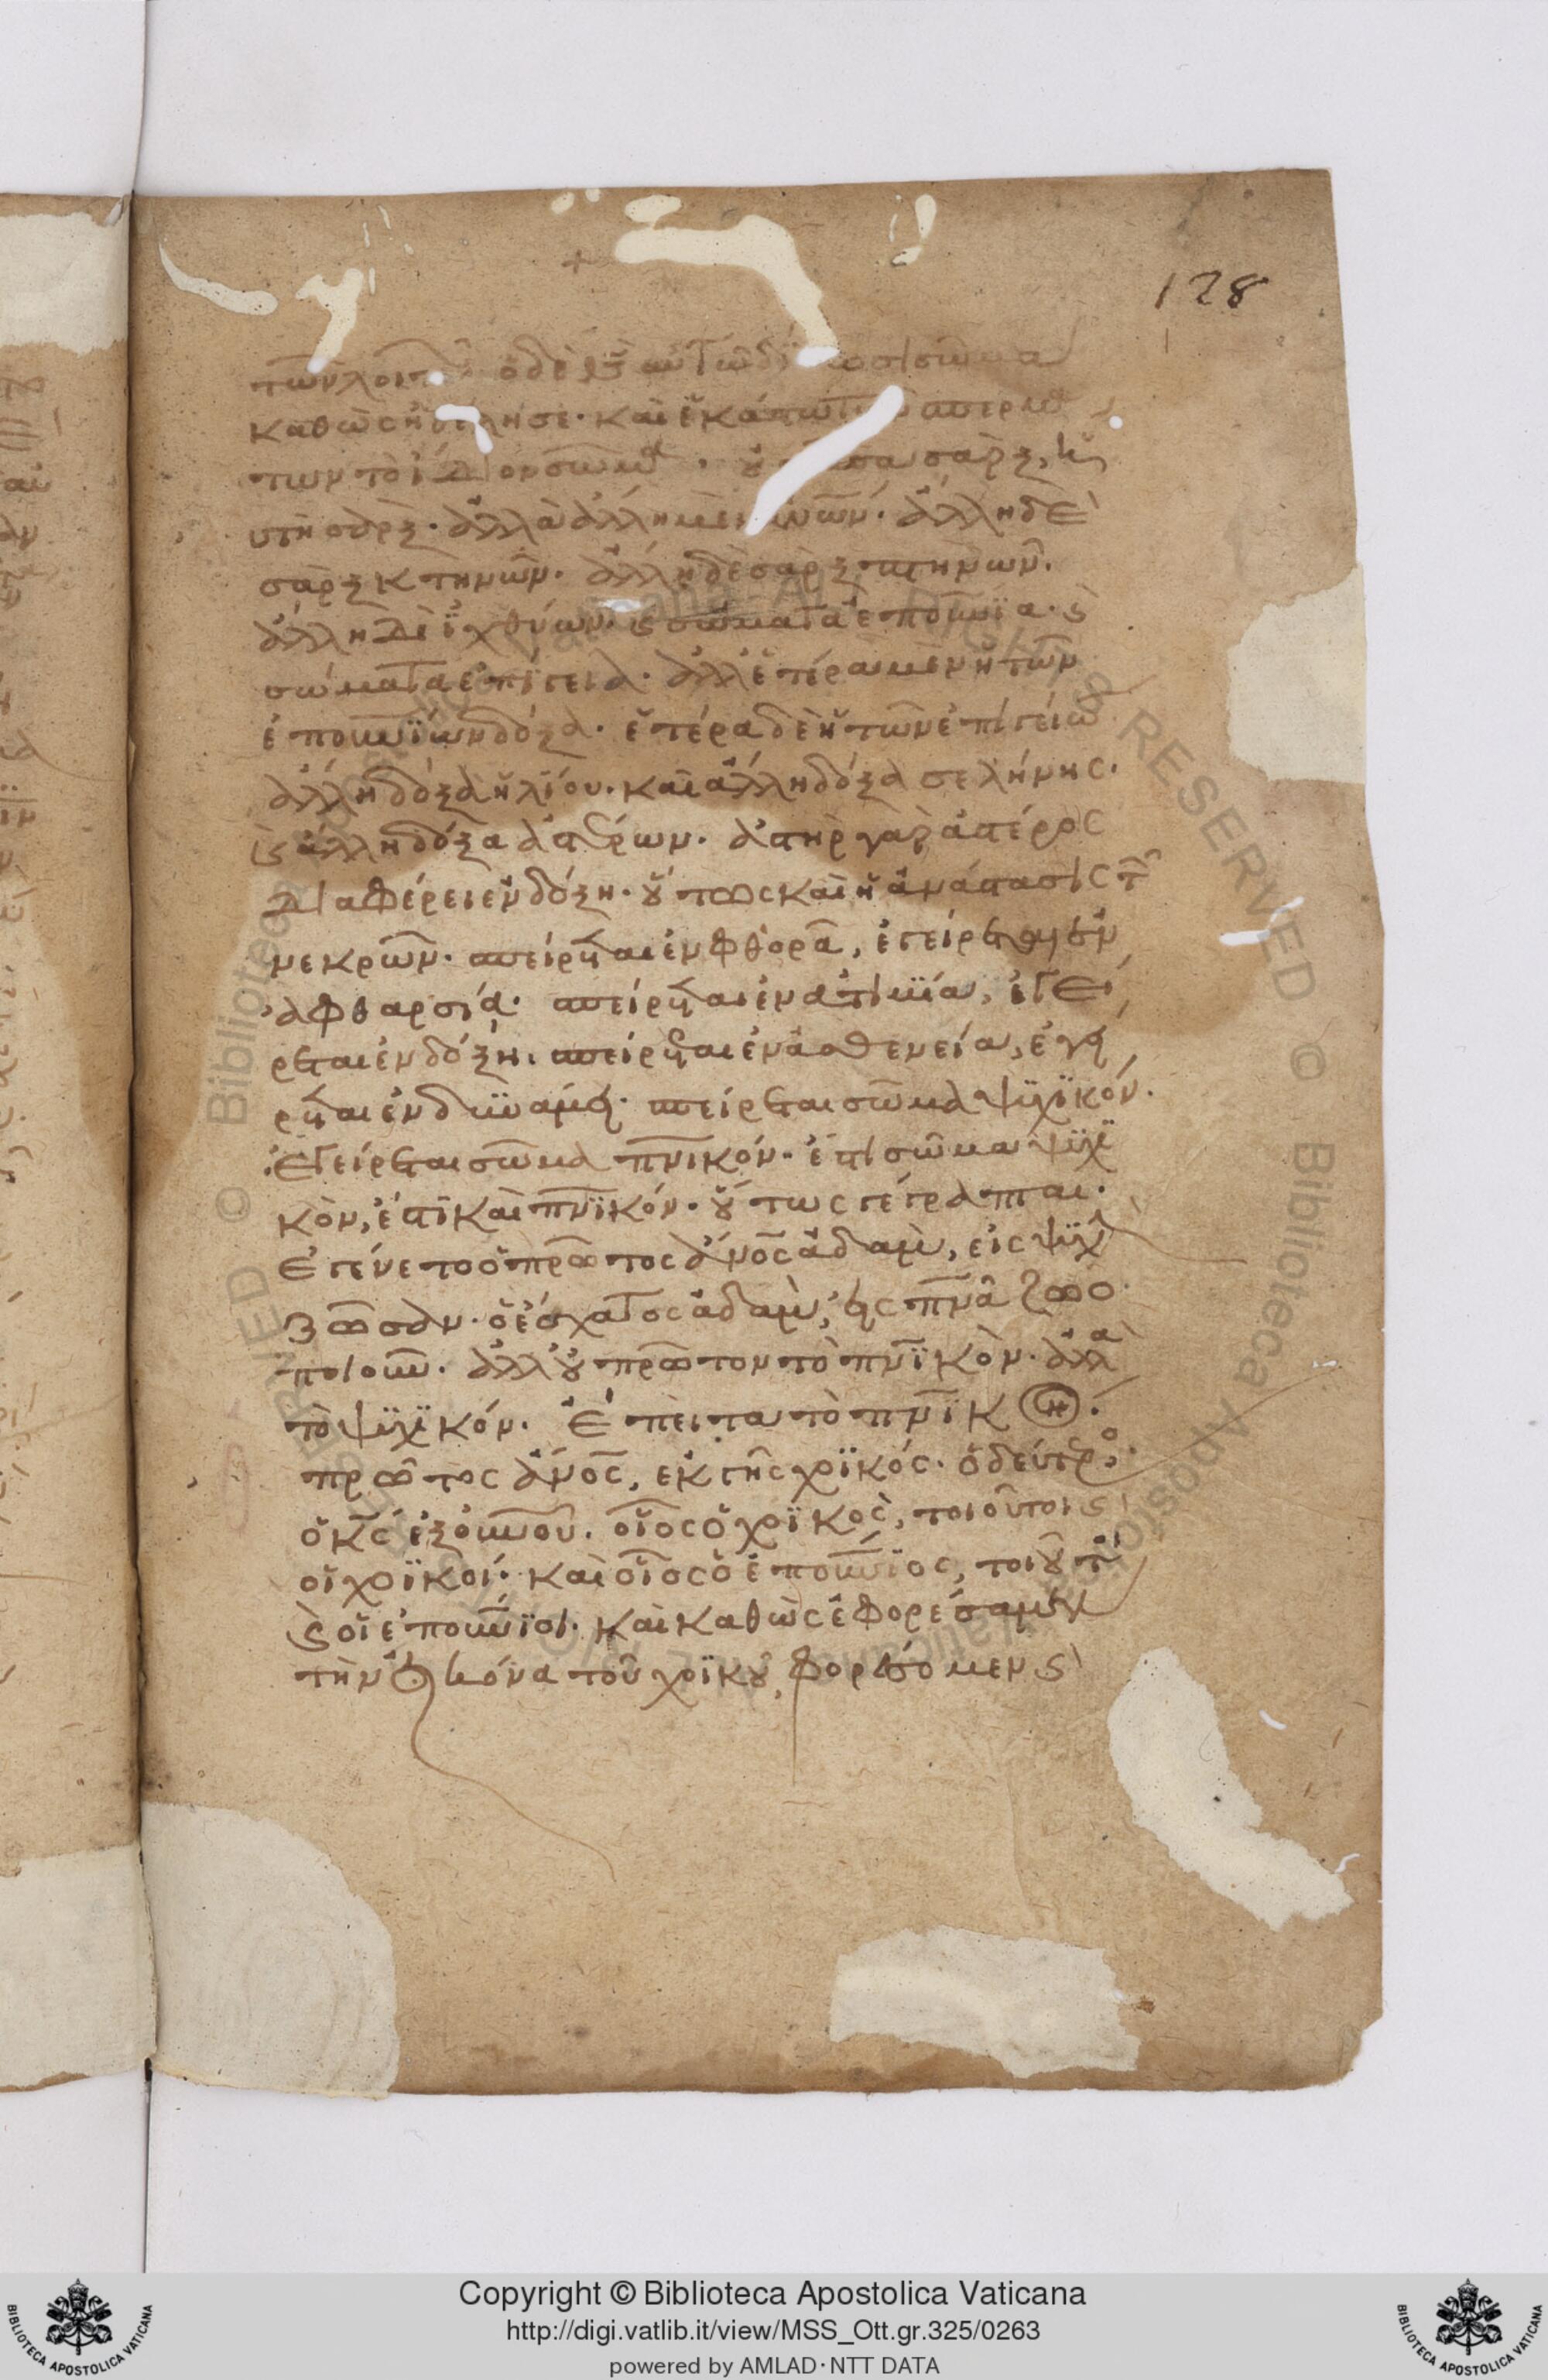 128
τῶν λοιπῶν ὁ δὲ θς αὐτῶ δίδωσι σῶμα
καθὼς ἠθέλησε· καὶ ἑκάστω τῶν σπερμά
των τὸ ἴδιον σῶμα · οὐ πᾶσα σὰρξ, ἡ
αὐτὴ σὰρξ· ἀλλὰ ἄλλη μὲν ἀνῶν· ἄλλη δὲ
σὰρξ κτηνῶν· ἄλλη δὲ σὰρξ πτηνῶν·
ἄλλη δὲ ἰχθύων· ϗ σώματα ἐπουνϊα· ϗ
σώματα ἐπίγεια· ἀλλ' ἑτέρα μὲν ἡ τῶν
ἐπουνϊων δόξα· ἑτέρα δὲ ἡ τῶν ἐπιγείω
ἄλλη δόξα ἡλίου· καὶ ἄλλη δόξα σελήνης·
ϗ ἄλλη δόξα ἀστέρων· ἀστὴρ γὰρ ἀστέρος
διαφέρει ἐν δόξη· οὕτως καὶ ἡ ἀνάστασις τῶν
νεκρῶν· σπείρεται ἐν φθορᾶ, ἐγείρεται ἐν
ἀφθαρσία· σπείρεται ἐν ἀτιμία, ἐγεί
ρεται ἐν δόξη· σπείρεται ἐν ἀσθενεία, ἐγεί
ρεται ἐν δυνάμει· σπείρεται σῶμα ψϋχϊκόν·
ἐγείρεται σῶμα πνικόν· ἔστι σῶμα ψϋχϊ
κὸν, ἔστι καὶ πνϊκόν· οὕτως γέγραπται·
Ἐγένετο ὁ πρῶτος ἄνος ἀδὰμ, εἰς ψϋχὴν
ζῶσαν· ὁ ἔσχατος ἀδὰμ, εἰς πνα ζωο
ποιοῦν· ἀλλ' οὐ πρῶτον τὸ πνϊκὸν· ἀλλὰ
τὸ ψϋχϊκόν· ἔπειτα τὸ πνϊκόν·
πρῶτος ἄνος, ἐκ γῆς χοϊκός· ὁ δεύτερος
ὁ κς ἐξ οὐνου· οἷος ὁ χοϊκὸς, τοιοῦτοι ϗ
οἱ χοϊκοί· καὶ οἷος ὁ ἐπουνϊος, τοιοῦτοι
ϗ οἱ ἐπουνϊοι· καὶ καθὼς ἐφορέσαμεν
τὴν εἰκόνα τοῦ χοϊκοῦ, φορέσομεν ϗ
Copyright © Biblioteca Apostolica Vaticana
http://digi.vatlib.it/view/MSS_Ott.gr.325/0263
powered by AMLAD·NTT DATA
BIBLIOTECA APOSTOLICA VATICANA
BIBLIOTECA APOSTOLICA VATICANA